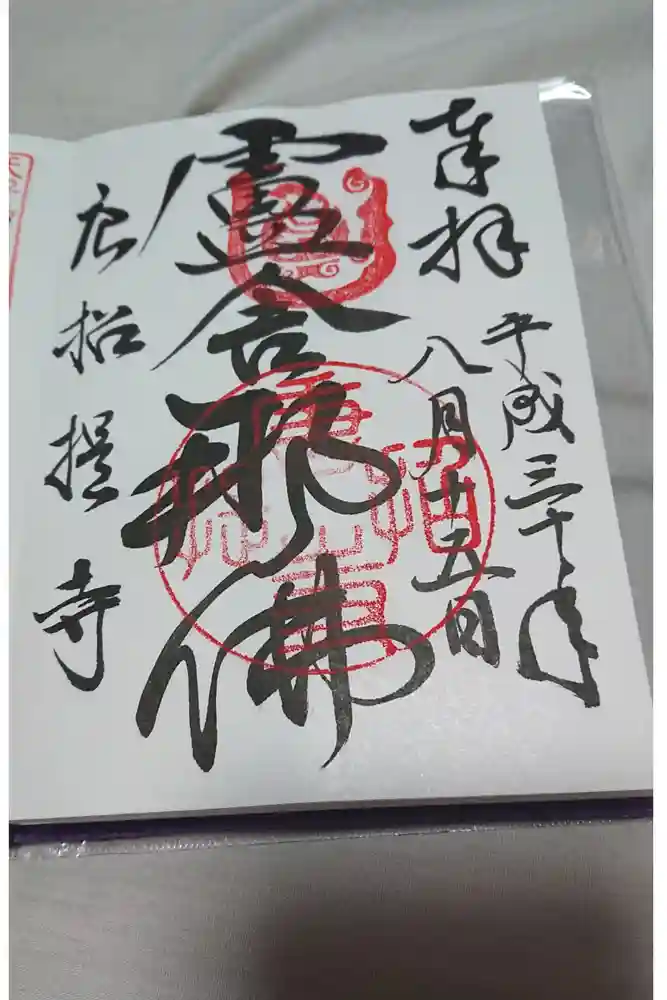 奉拝
平成三十年
八月十五日
盧舍那佛
唐招提寺